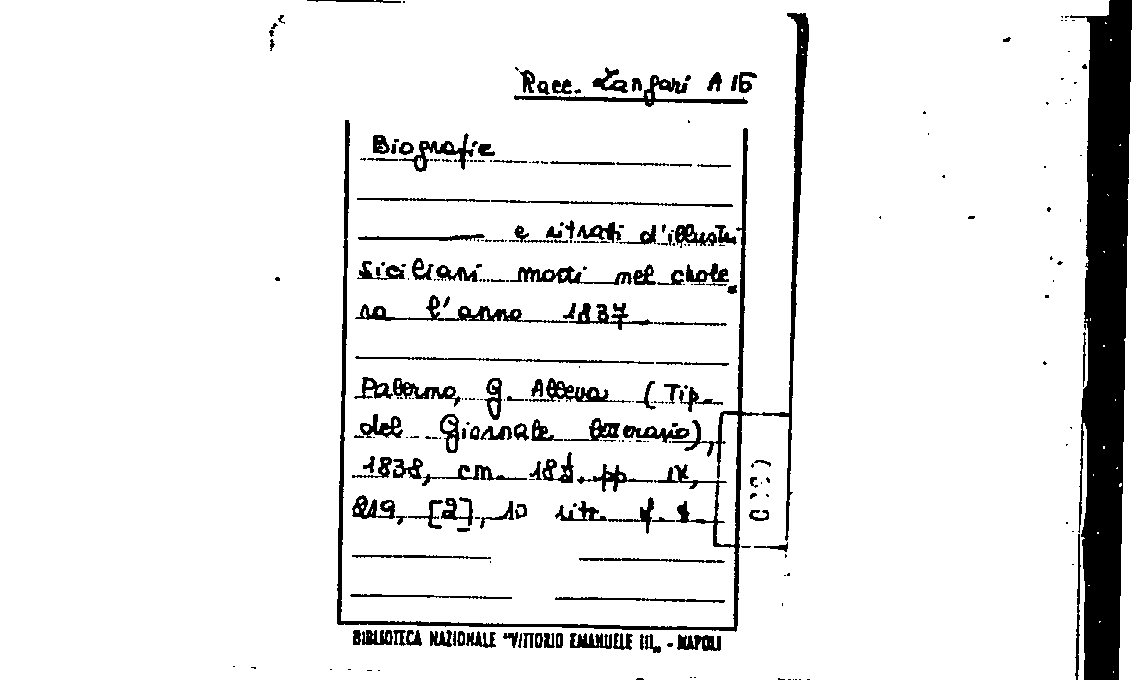 Racc. Zangari A 15
Biografie
e ritratti d'illustri
siciliani morti nel chole
ra l'anno 1837
Palermo, G. Alleva (Tip.
del Giornale letterario),
1838, cm. pp. IX,
219, [2], 10 ritr.
BIBLIOTECA NAZIONALE "VITTORIO EMANUELE III„ - NAPOLI